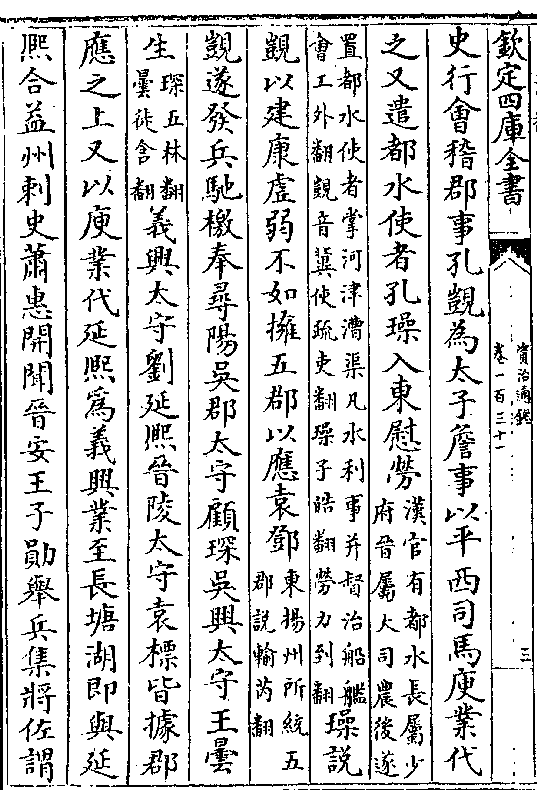 欽定四庫全書
資治通鑑
卷一百三十一
三
史行會稽郡事孔覬為太子詹事以平西司馬庾業代
之又遣都水使者孔璪入東慰勞
漢官有都水長屬少
府晉屬大司農後遂
置都水使者掌河津漕渠凡水利事并督治船艦
會工外翻覬音冀使疏吏翻璪子皓翻勞力到翻
璪說
覬以建康虛弱不如擁五郡以應袁鄧
東揚州所統五
郡說輸芮翻
覬遂發兵馳檄奉尋陽吳郡太守顧琛吳興太守王曇
生
琛丑林翻
曇徒含翻
義興太守劉延熙晉陵太守袁標皆據郡
應之上又以庾業代延熙為義興業至長塘湖即與延
熙合益州刺史蕭惠開聞晉安王子勛舉兵集將佐謂